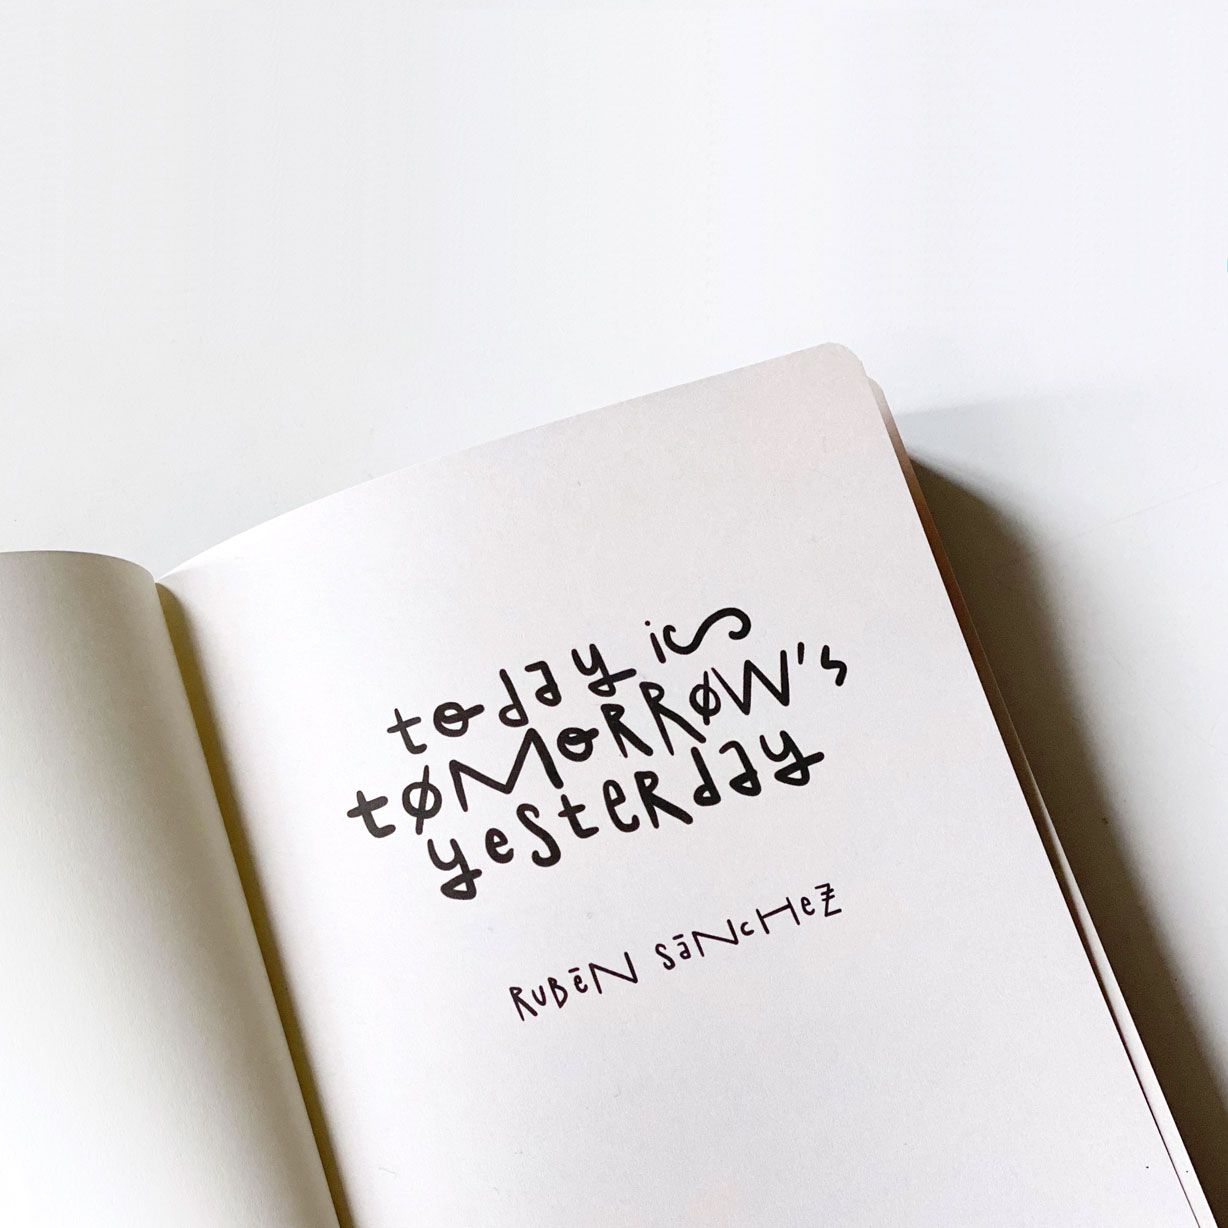 today is
tØMoRRØW's
yesteRday
RUBēN SāNcHeZ